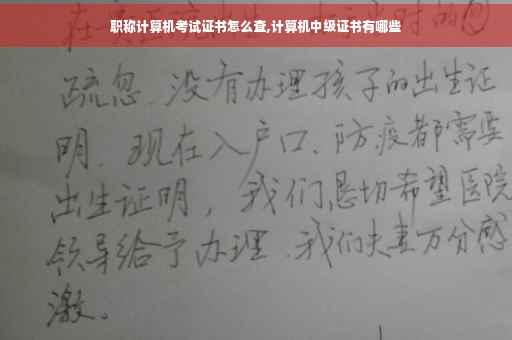 职称计算机考试证书怎么查,计算机中级证书有哪些
在 时的
疏忽、没有办理孩子的出生证
明、现在入户口、防疫都需要
出生证明，我们恳切希望医院
领导给予办理、我们夫妻万分感
激。